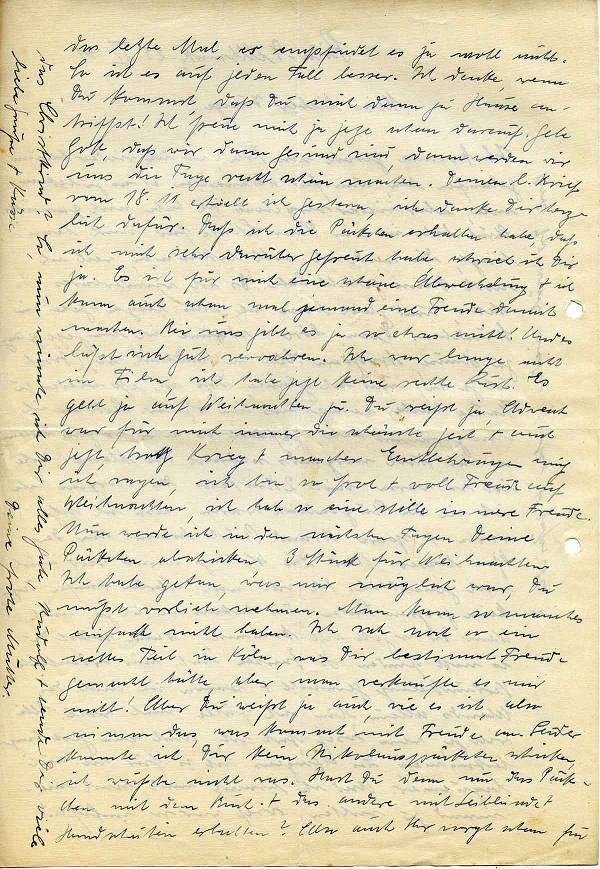 das letzte Mal, er empfindet es ja wohl nicht.
So ist es auf jeden Fall besser. Ich denke, wenn
Du kommst, daß Du mich dann zu Hause an-
triffst! Ich freue mich ja jetzt schon darauf. Gebe
Gott, daß wir dann gesund sind, dann werden wir
uns die Tage recht schön machen. Deinen l. Brief
vom 18. 11 erhielt ich gestern, ich danke Dir herz-
lich dafür. Daß ich die Päckchen erhalten habe, daß
ich mich sehr darüber gefreut habe schrieb ich Dir
ja. Es ist für mich eine schöne Abwechslung + ich
kann auch schon mal jemand eine Freude damit
machen. Bei uns gibt es ja so etwas nicht! Und es
läßt sich gut verwahren. Ich war lange nicht
im Film, ich habe jetzt keine rechte Lust. Es
geht ja auf Weihnachten zu. Du weißt ja, Advent
war für mich immer die schönste Zeit + auch
jetzt, trotz Krieg + mancher Entbehrungen muß
ich sagen, ich bin so froh + voll Freude auf
Weihnachten, ich hab so eine stille innere Freude.
Nun werde ich in den nächsten Tagen Deine
Päckchen abschicken 3 Stück für Weihnachten
Ich habe getan, was mir möglich war, Du
mußt vorlieb nehmen. Man kann so manches
einfach nicht haben. Ich sah noch so ein
nettes Teil in Köln, was Dir bestimmt Freude
gemacht hätte, aber man verkaufte es mir
nicht! Aber Du weißt ja auch, wie es ist, also
nimm das, was kommt mit Freude an. Leider
konnte ich Dir kein Nikolauspäckchen schicken,
ich wußte nicht was. Hast Du denn nun das Päck-
chen mit dem Buch + das andere mit Leibbinde +
Handschuhen erhalten? Ob auch Ihr sorgt schon für
das Christkind? So, nun wünsche ich Dir alles Gute, Rudolf + sende Dir viele
liebe Grüße + Küsse
Deine Mutter.